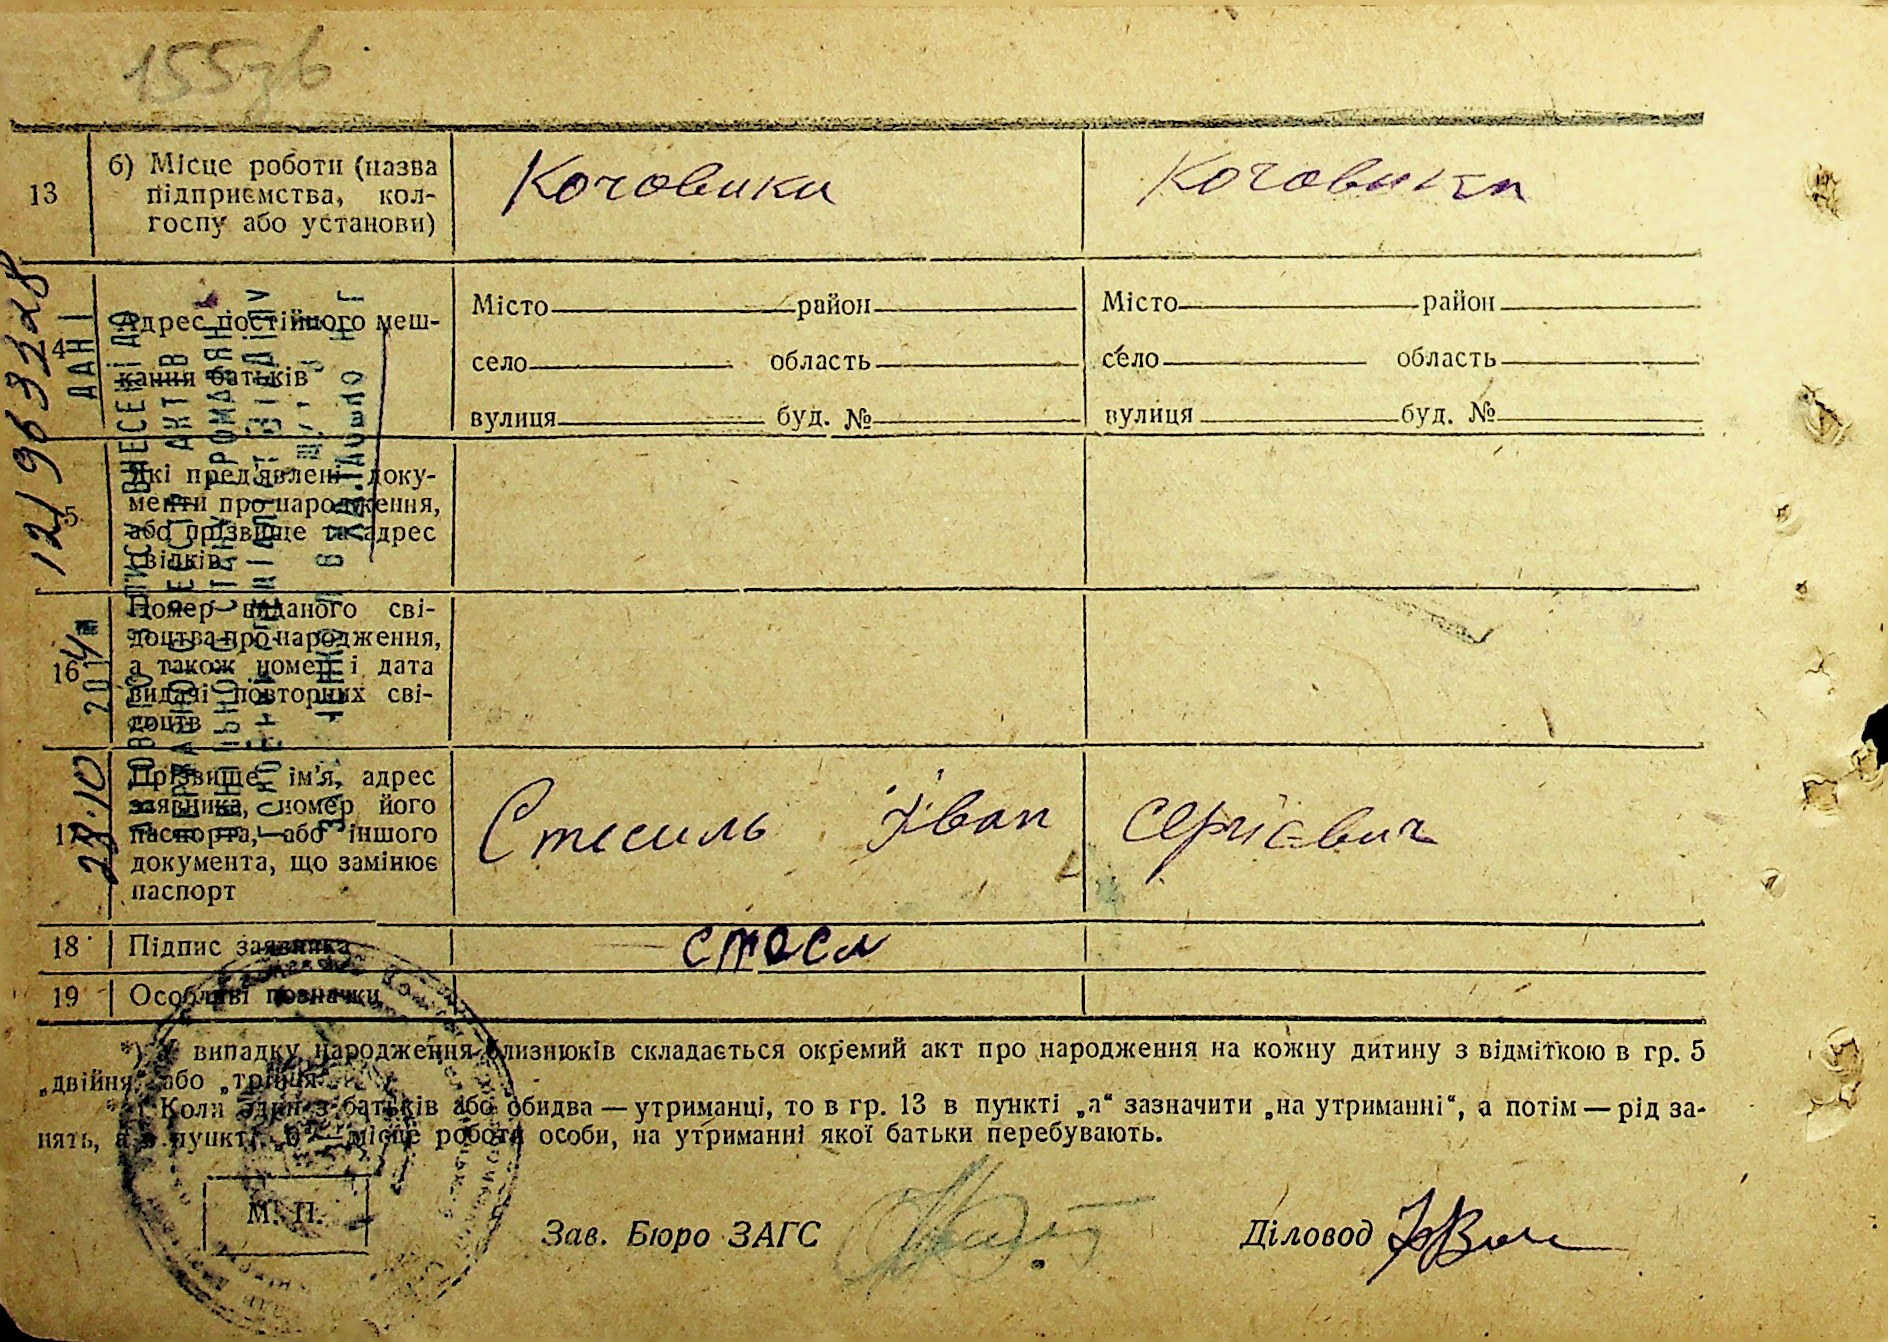 155зв
13 б) Місце роботи (назва підприємства, кол-госпу або установи) Кочовики Кочовики
Адрес постійного меш-
кання батьків
Місто район Місто район
село область село область
вулиця буд. № вулиця буд. №
Які пред'явлені доку-
менти про народження,
або прізвище та адрес
свідків
16 Номер виданого сві-
доцтва про народження,
а також номер і дата
видачі повторних сві-
доцтв
17 Прізвище, ім'я, адрес
заявника, номер його
паспорта, або іншого
документа, що замінює
паспорт
Стесиль Іван Сергієвич
18 Підпис заявника стесл
19 Особливі позначки
*) У випадку народження близнюків складається окремий акт про народження на кожну дитину з відміткою в гр. 5
„двійня“ або „трійня“.
Коли один з батьків або обидва — утриманці, то в гр. 13 в пункті „а“ зазначити „на утриманні“, а потім — рід за-
нять, а в пункті „б“ — місце роботи особи, на утриманні якої батьки перебувають.
М. П.
Зав. Бюро ЗАГС Діловод
1219633228
ДАНІ
23.10 2014